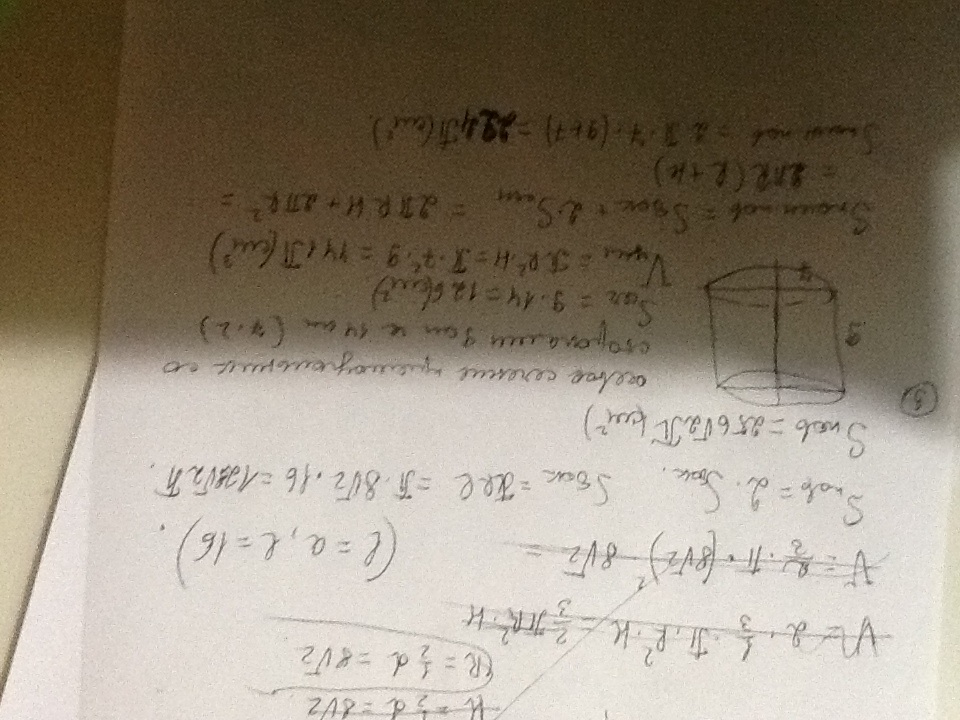 H = 1/2 d = 8√2
(R = 1/2 d = 8√2
V = 2 · 1/3 · π · R² · H = 2/3 πR² · H
V = 2/3 · π · (8√2)² · 8√2 =
(l = a, l = 16).
Sпов = 2 · Sбок. Sбок = πRl = π · 8√2 · 16 = 128√2 π.
Sпов = 256√2 π (см²)
3) осевое сечение прямоугольник со
сторонами 9 см и 14 см (7·2)
Sсеч = 9·14 = 126 (см²)
9
7
Vцил = πR²·H = π·7²·9 = 441π (см³)
Sполн пов = Sбок + 2·Sосн = 2πRH + 2πR² =
= 2πR(R+H)
Sполн пов = 2π·7·(9+7) = 224π (см²).